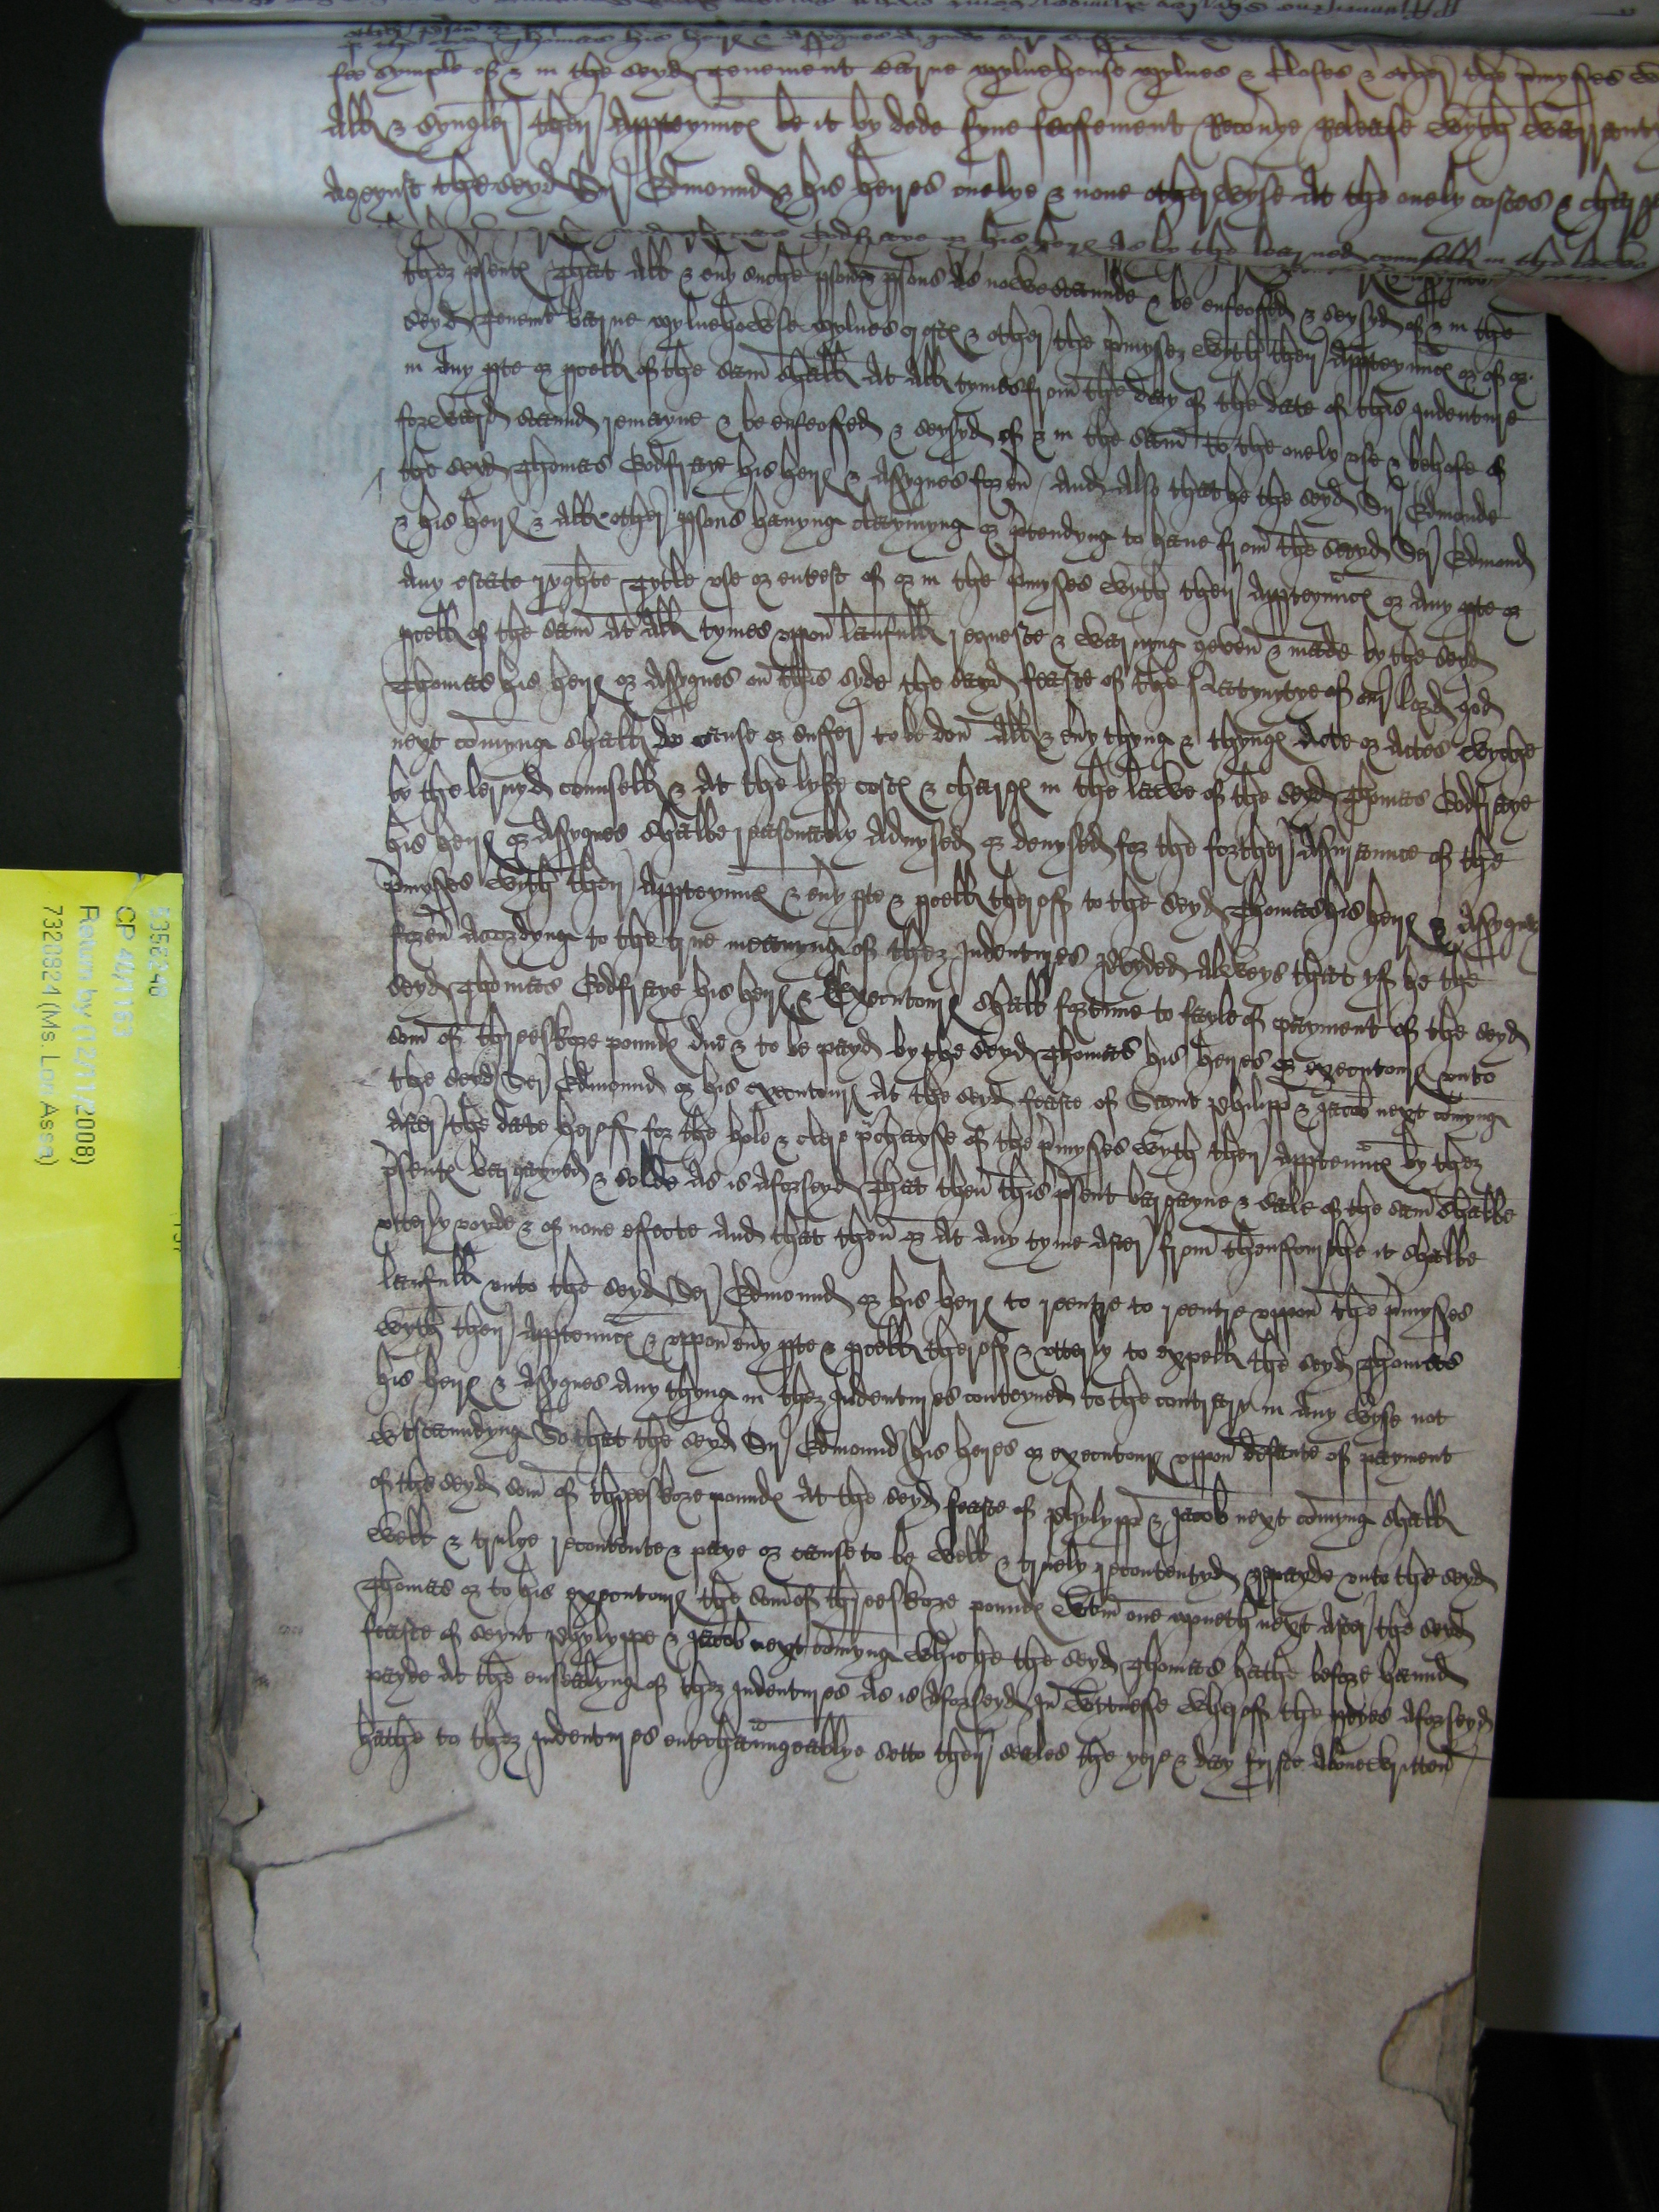 fee symple of & in the seyd Tenement barne mylnehouse mylnes & closes & other the p'mysses
All & synguler ther Appteynnc' be it by dede fyne feoffement Recou'ye Release Wyth Warrant
Ageynst the seyd Sir Edmound & his heyres onelye & none otherwyse At the onely costes & charge
Godfraye or his heyr' As by the learned counsell in the lawe
thez p'sent' That All & eu'y suche p'son & p'sons As nowe stannde & be enfeoffed & seysyd of & in the
seyd Tenemt barne mylnehowse mylnes & other the p'mysez Wyth ther Appteynnc' or of or
in Any p'te or p'cell of the sam shall At All tymes from the day of the date of this Indenture
forward stannd remayne & be enfeoffed & seysyd of & in the sam to the onely vse & behofe of
the seyd Thomas Godfraye his heyr' & Assygnes for eu' / And Also that he the seyd Sir Edmonde
& his heyr' & All other p'sons hauyng claymyng or p'tendyng to haue from the seyd Ser Edmond
Any estate ryghte Tytle vse or entrest of or in the p'mysses Wyth ther Appteynnc' or Any p'te or
p'cell of the sam At All tymes vppon laufull requeste & warnyng geven & made by the seyd
Thomas his heyr' or Assygnes on this syde the sayd feaste of the Natyuytye of our lord god
next comyng shall do cause or suffer to be don All & eu'y thyng & thyng' Acte or Actes Wyche
by the lernyd counsell & At the lyke cost' & charg' in the lawe of the seyd Thomas Godfraye
his heyr' or Assygnes shalbe reasonably Aduysed or deuysed for the forther Assurannce of the
p'mysses Wyth ther Appteynnc' & eu'y p'te & p'cell therof to the seyd Thomas his heyr' & Assygnes
for eu' Accordyng to the true meanyng of thez Indentures p'vyded Alweys that yf he the
seyd Thomas Godfraye his heyr' & Executour' shall fortune to fayle of payment of the seyd
som of threskore pound' due & to be payd by the seyd Thomas his heyres or executour' vnto
the seyd Ser Edmound or his executour' At the seyd feaste of Saynt Philipp & Jacob next comyng
After the date herof for the hole & clere p'chaysse of the p'mysses Wyth ther Apptennc' by thez
p'sent' bargayned & solde As is Aforseyd That then this p'sent bargayne & sale of the sam shalbe
vtterly voyde & of none effecte And that then or At Any tyme After from thensfourthe it shalbe
laufull vnto the seyd Ser Edmound or his heyr' to reentre to reentre vppon the p'mysses
Wyth ther Apptennc' & vppon eu'y p'te & p'cell therof & vtterly to expell the seyd Thomas
his heyr' & Assygnes Any thyng in thez Indentures conteyned to the contrary in Any Wyse not
Wtstanndyng So that the seyd Sir Edmound his heyres or executour' vppon defaute of payment
of the seyd som of threskore pound' At the seyd feaste of Phylypp & Jacob next comyng shall
Well & trulye recontente & paye or cause to be Well & truely recontentyd & payde vnto the seyd
Thomas or to his executour' the som of threeskore pound' Wtin one moneth next After the seyd
feaste of seynt Phylyppe & Jacob next comyng Whiche the seyd Thomas hathe before hannd
payde At the ensealyng of thez Indentures As is Aforseyd In Wytnesse Wherof the p'tyes Aforseyd
hathe to thez Indentures enterchanngeablye setto ther seales the yere & day fyrste Aboue Written
5356248
CP 40/1153
Return by (12/11/2008)
7328924 (Ms. Lori Assa)